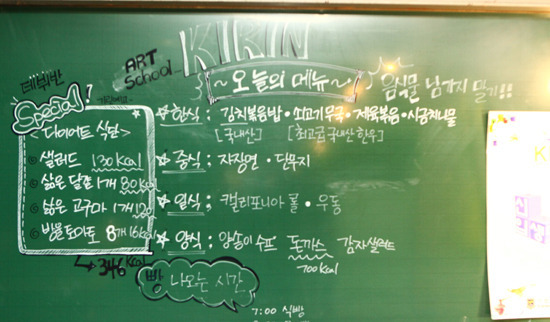 데뷔반
ART
School
KIRIN
~오늘의 메뉴~
음식물 남기지 말기!!
Special!
<다이어트 식단>
◎ 샐러드 130Kcal
◎ 삶은 달걀 1개 80Kcal
◎ 삶은 고구마 1개 120
◎ 방울토마토 8개 16Kcal
→ 346Kcal
☆ 한식 : 김치볶음밥 • 쇠고기무국 • 제육볶음 • 시금치나물
[국내산] [최고급 국내산 한우]
☆ 중식 : 자장면 • 단무지
☆ 일식 : 캘리포니아 롤 • 우동
☆ 양식 : 양송이 수프 돈까스 감자샐러드
700Kcal
빵 나오는 시간
7:00 식빵
K
신
입
생